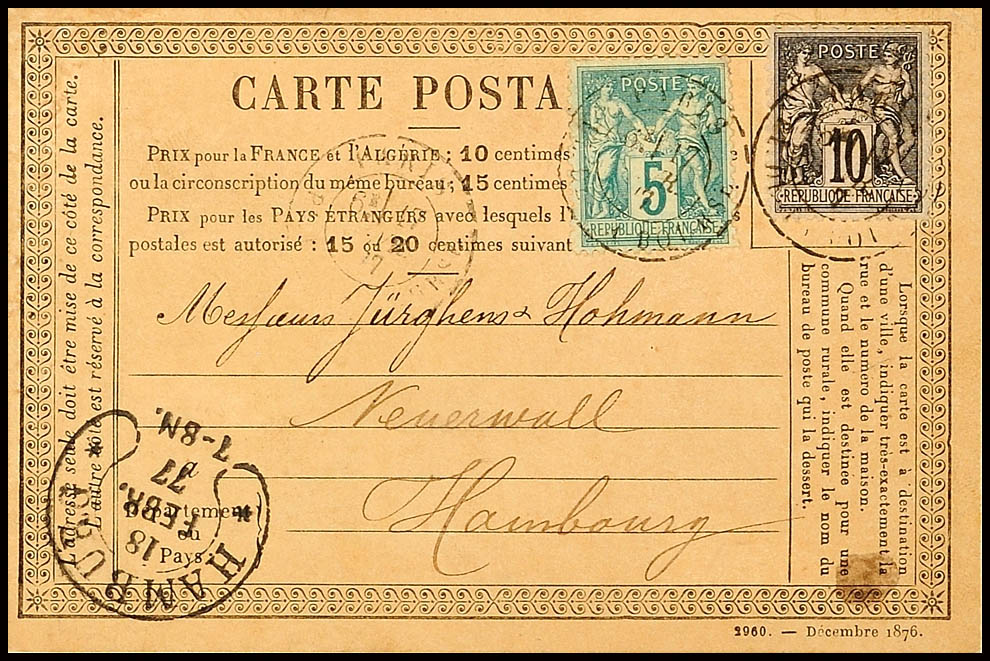 CARTE POSTA
PRIX pour la FRANCE et l'ALGÉRIE : 10 centimes
ou la circonscription du même bureau ; 15 centimes
PRIX pour les PAYS ÉTRANGERS avec lesquels l'
postales est autorisé : 15 ou 20 centimes suivant
POSTE
5
REPUBLIQUE FRANÇAISE
POSTE
10
REPUBLIQUE FRANÇAISE
PARIS
Messieurs Jürghens & Hohmann
Neuerwall
Hambourg
Département
ou
Pays
L'adresse seule doit être mise de ce côté de la carte.
L'autre côté est réservé à la correspondance.
Lorsque la carte est à destination
d'une ville, indiquer très-exactement la
rue et le numero de la maison.
Quand elle est destinée pour une
commune rurale, indiquer le nom du
bureau de poste qui la dessert.
HAMBURG
18
FEBR.
77
7-8N.
2960. — Décembre 1876.